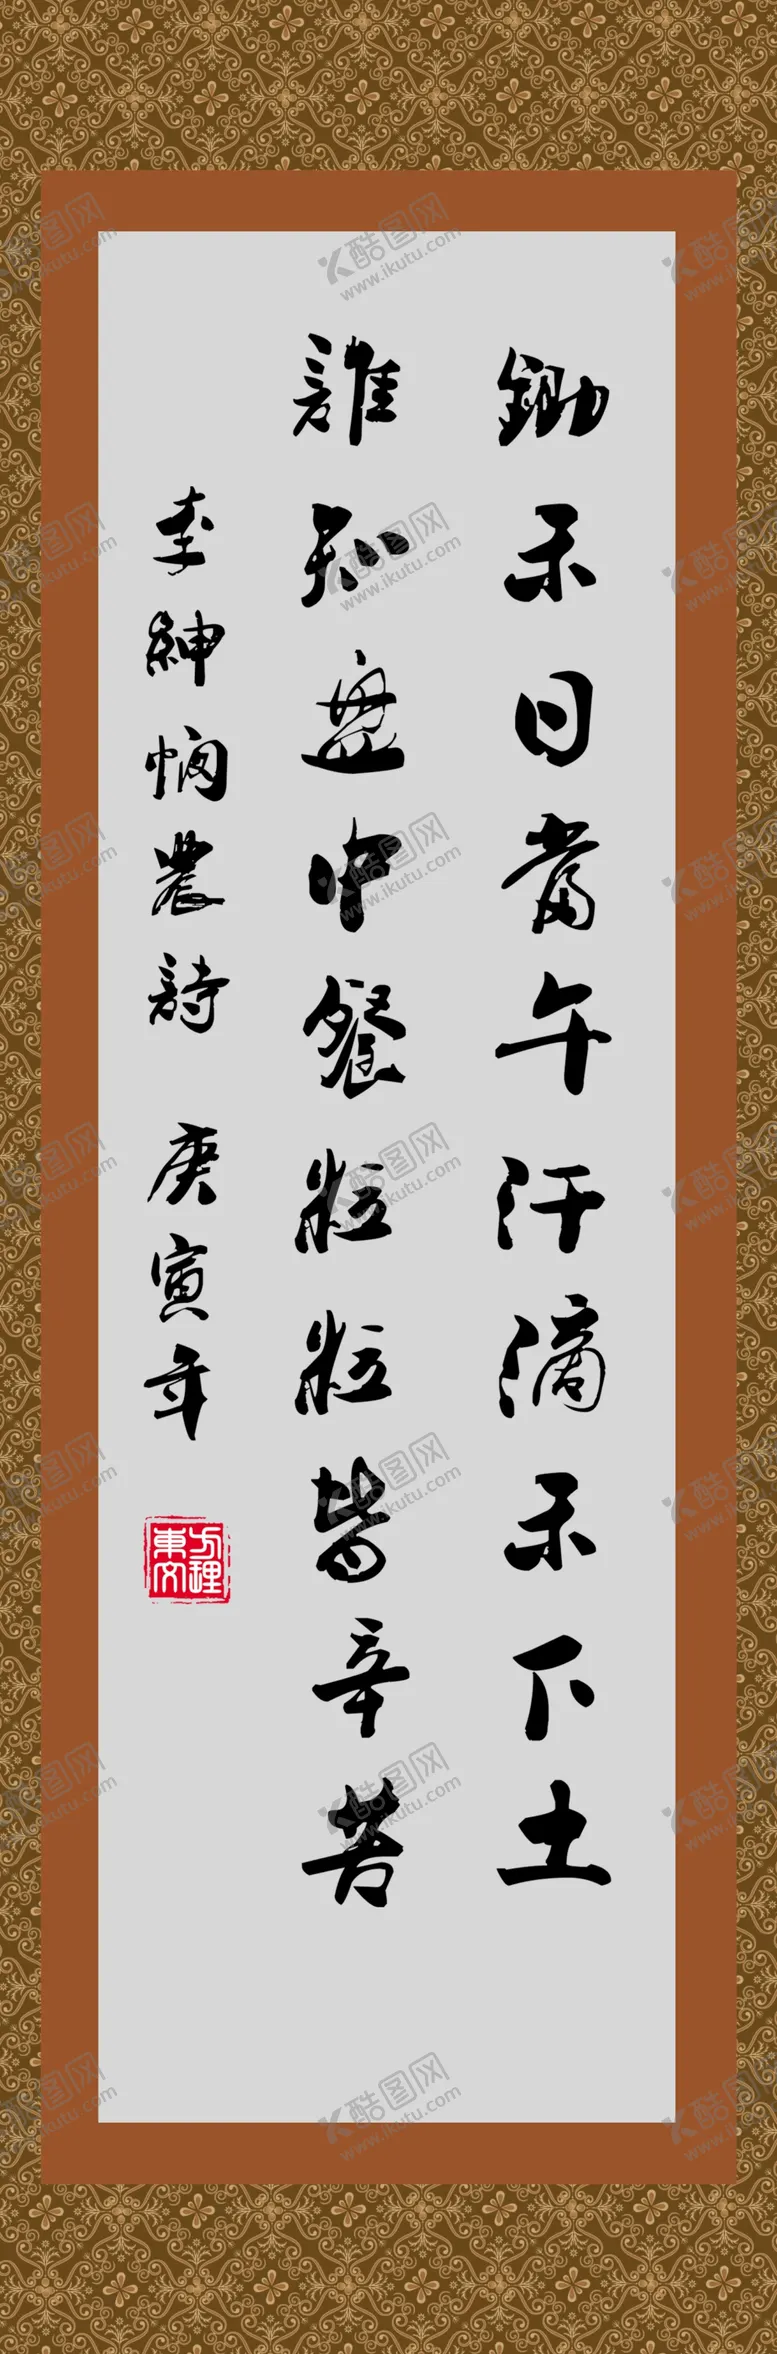 鋤禾日當午汗滴禾下土
誰知盘中餐粒粒皆辛苦
李紳憫農詩 庚寅年
酷图网
www.ikutu.com